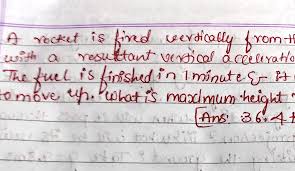 A rocket is fired vertically from
with a resultant vertical acceleratio
The fuel is finished in 1 minute & it
to move up. what is maximum height
[Ans: 36.4